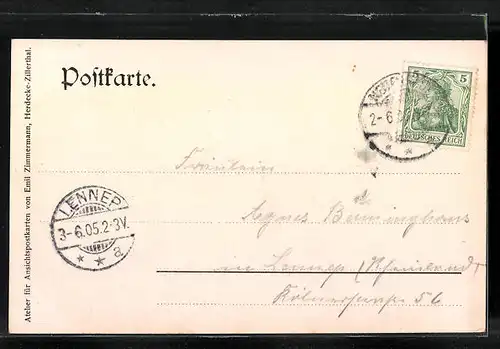 Postkarte.
5
DEUTSCHES REICH
2-6.0
Fräulein
Agnes Buninghaus
in Lennep (Rheinland)
Kölnerstrasse 56
LENNEP
3-6.05.2-3V.
* * a
Atelier für Ansichtspostkarten von Emil Zimmermann, Herdecke-Zillerthal.